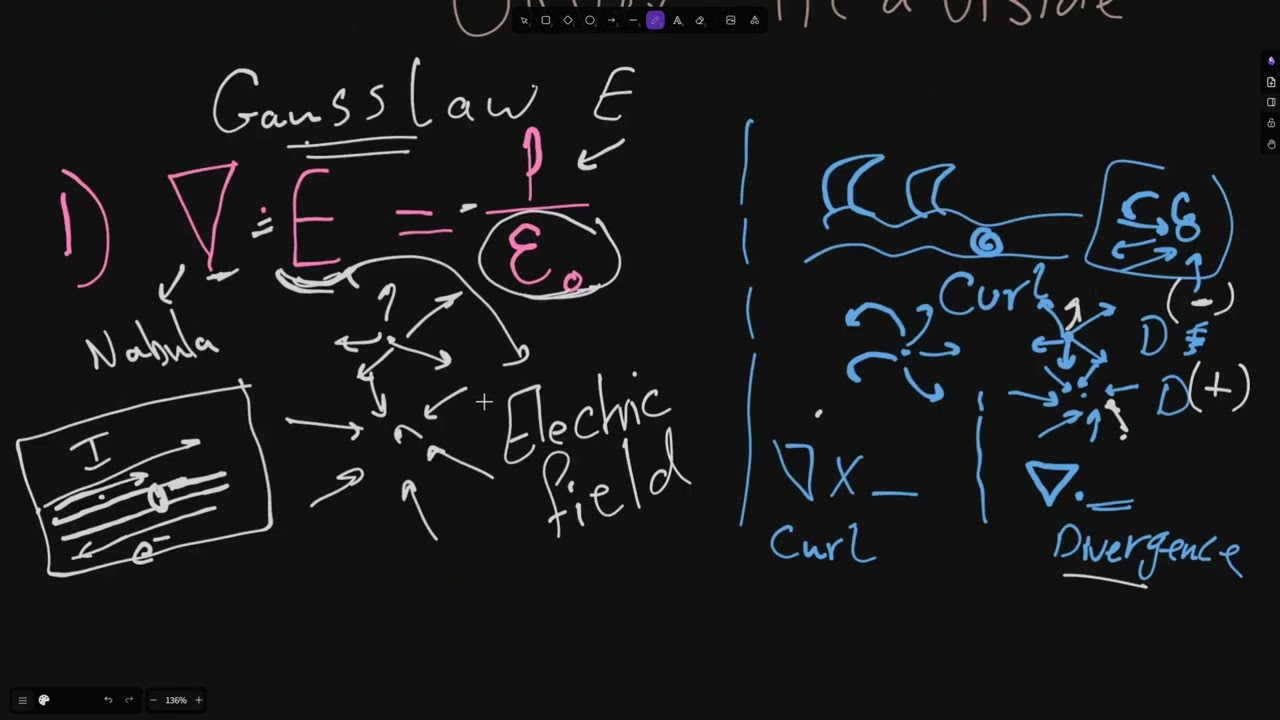 Gauss law E
1) ∇ · E = ρ / ε₀
Nabula
I
e⁻
Electric
field
Curl
(-)
D
D (+)
∇ X _
Curl
∇ · _
Divergence
136%